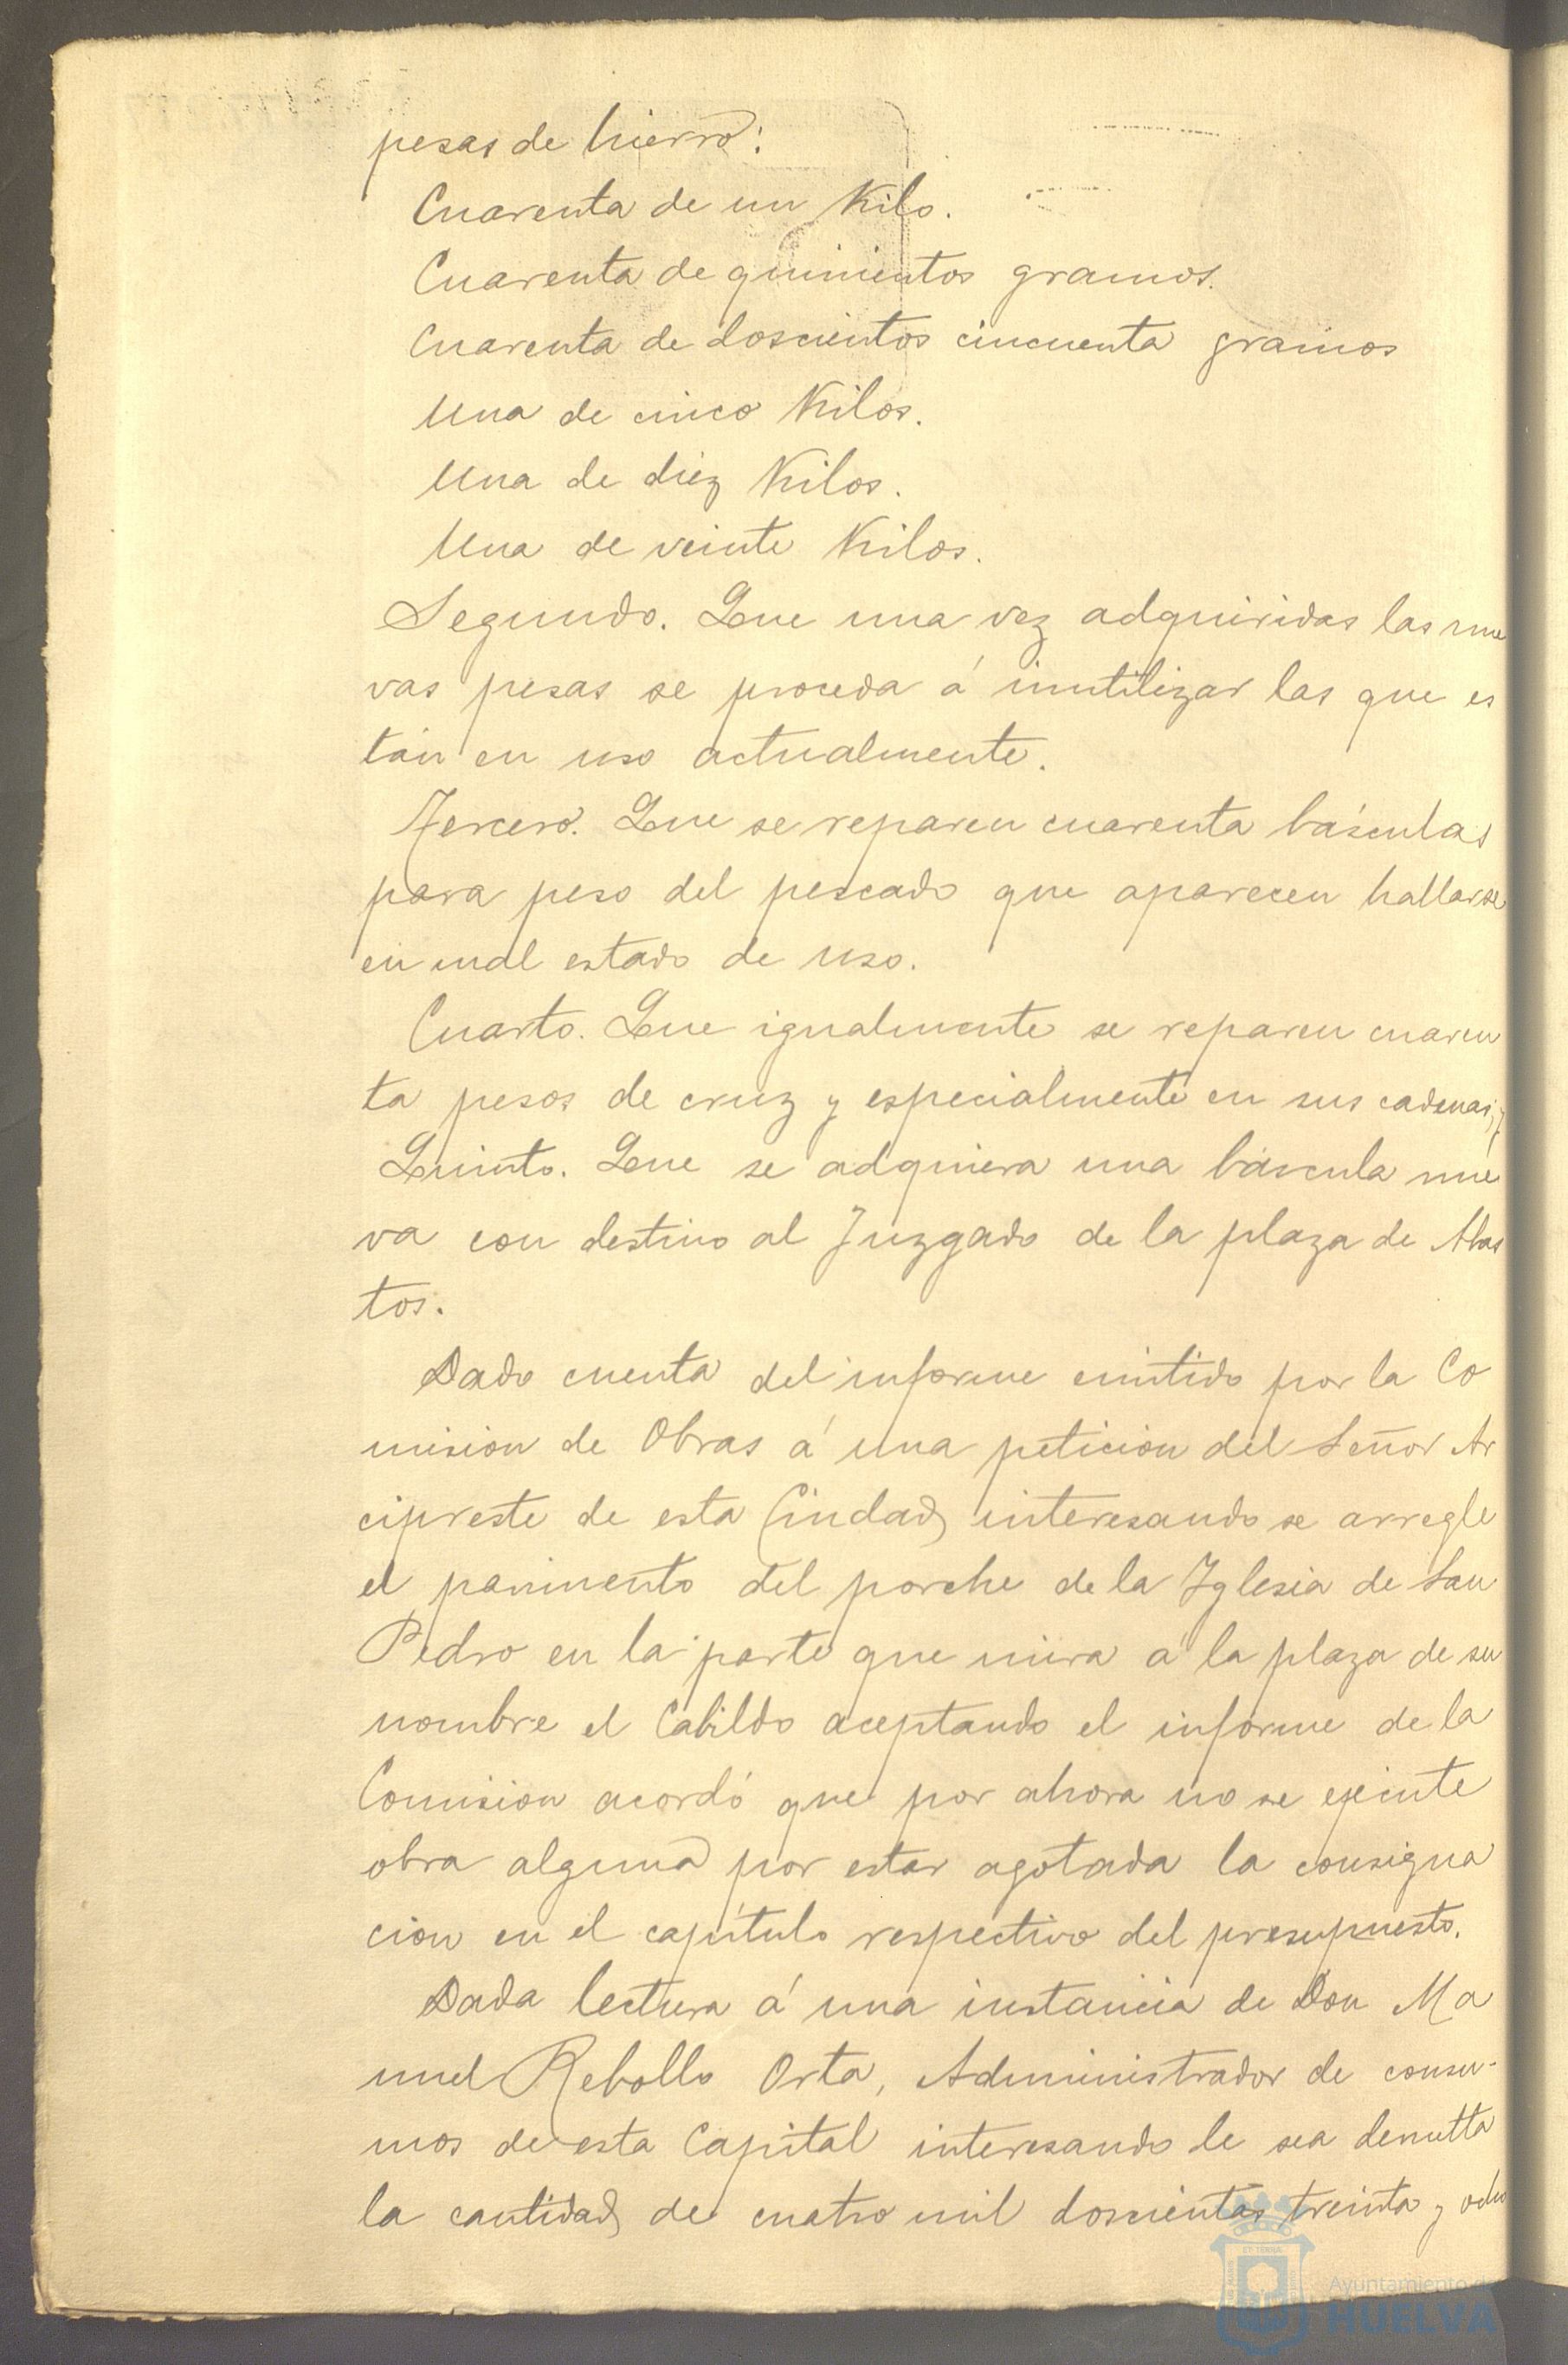 pesas de hierro:
Cuarenta de un Kilo.
Cuarenta de quinientos gramos.
Cuarenta de doscientos cincuenta gramos
Una de cinco Kilos.
Una de diez Kilos.
Una de veinte Kilos.
Segundo. Que una vez adquiridas las nue
vas pesas se proceda á inutilizar las que es
tán en uso actualmente.
Tercero. Que se reparen cuarenta básculas
para peso del pescado que aparecen hallarse
en mal estado de uso.
Cuarto. Que igualmente se reparen cuaren
ta pesos de cruz y especialmente en sus cadenas, y
Quinto. Que se adquiera una báscula nue
va con destino al Juzgado de la plaza de Abas
tos.
Dado cuenta del informe emitido por la Co
mision de Obras á una peticion del Señor Ar
cipreste de esta Ciudad interesando se arregle
el pavimento del porche de la Yglesia de San
Pedro en la parte que mira á la plaza de su
nombre el Cabildo aceptando el informe de la
Comision acordó que por ahora no se ejecute
obra alguna por estar agotada la consigna
cion en el capítulo respectivo del presupuesto.
Dada lectura á una instancia de Don Ma
nuel Rebollo Orta, Administrador de consu-
mos de esta Capital interesando le sea
la cantidad de cuatro mil doscientas treinta y ocho
Ayuntamiento de
HUELVA